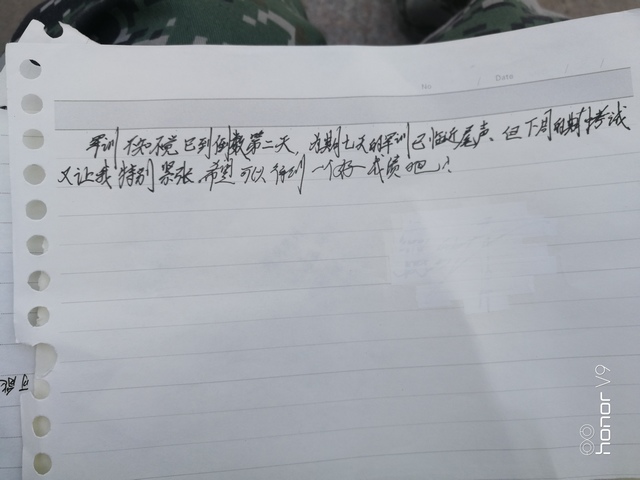 No Date
军训不知不觉已到倒数第二天，为期七天的军训已临近尾声，但下周的期考试
又让我特别紧张，希望可以得到一个好成绩吧！
可能
honor V9